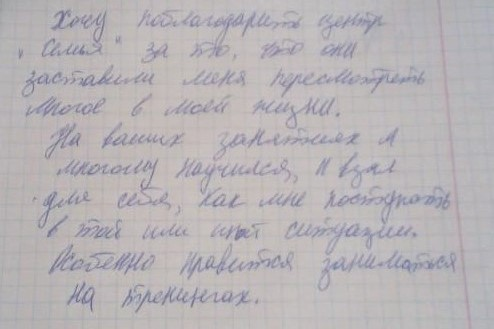 Хочу поблагодарить центр
"Семья" за то, что они
заставили меня пересмотреть
многое в моей жизни.
На ваших занятиях я
многому научился, и взял
для себя, как мне поступать
в той или иной ситуации.
Особенно нравится заниматься
на тренингах.